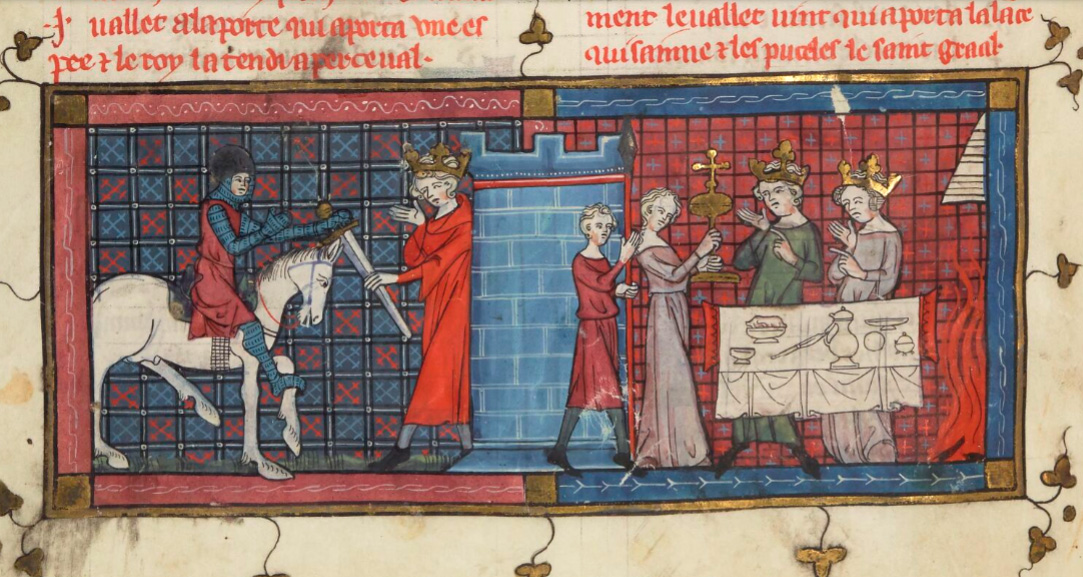 .I. uallet a la porte qui aporta une es
pee ⁊ le roy la tendi a perceual.
ment le uallet uint qui aporta la lace
qui sainne ⁊ les puceles le saint graal.